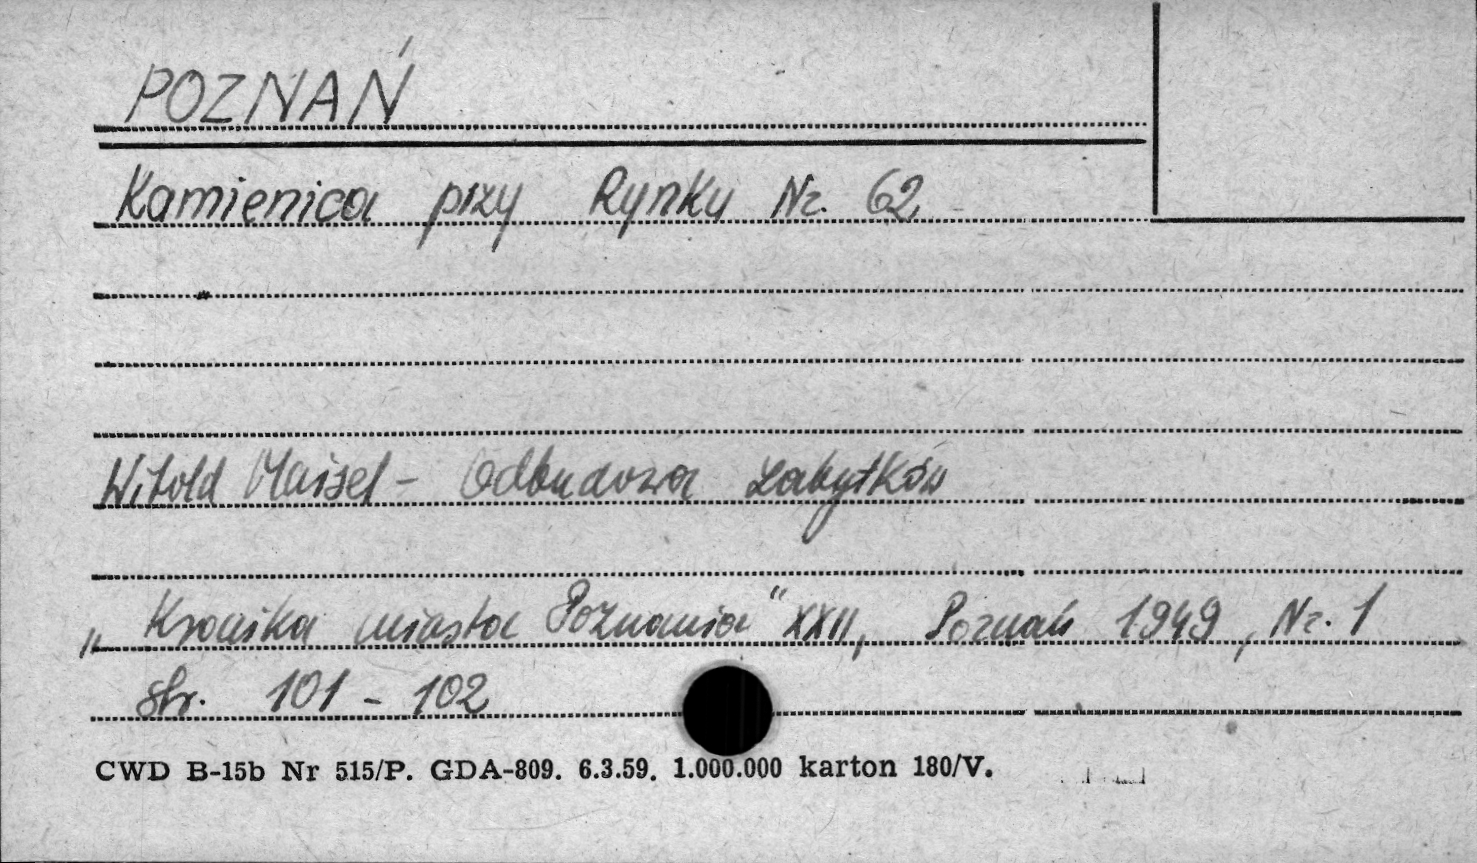 POZNAŃ
Kamienica przy Rynku Nr. 62
Witold Maisel - Odbudowa zabytków
„Kronika miasta Poznania" XXII, Poznań 1949, Nr. 1
str. 101 - 102
CWD B-15b Nr 515/P. GDA-809. 6.3.59. 1.000.000 karton 180/V.